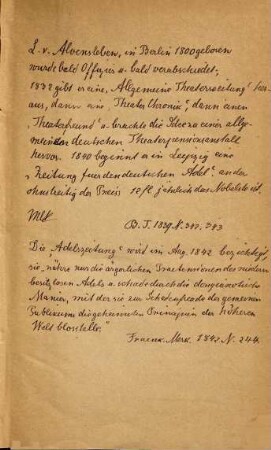 L. v. Alvensleben, in Berlin 1800 geboren
wurde bald Offizier u. bald verabschiedet;
1832 gibt er eine „Allgemeine Theaterzeitung" her-
aus, dann eine Theater Chronik", dann einen
„Theaterfreund" u. brachte die Idee zu einer allge-
meinen deutschen Theaterpensionsanstalt
hervor. 1840 beginnt er in Leipzig eine
„Zeitung für den deutschen Adel", an der
der Preis 10 fl. jährlich das Nobelste ist.
B. T. 1839. N. 242, 243
Die „Adelszeitung" wird im Aug. 1842 bezichtigt,
sie „nähre nur die ärgerlichen Praetensionen des modern
besitzlosen Adels u. schade durch die
Manier, mit der sie zur Schadenfreude des gemeinen
Publikums die geheimsten Prinzipien der höheren
Welt blosstelle."
1842 N. 244.